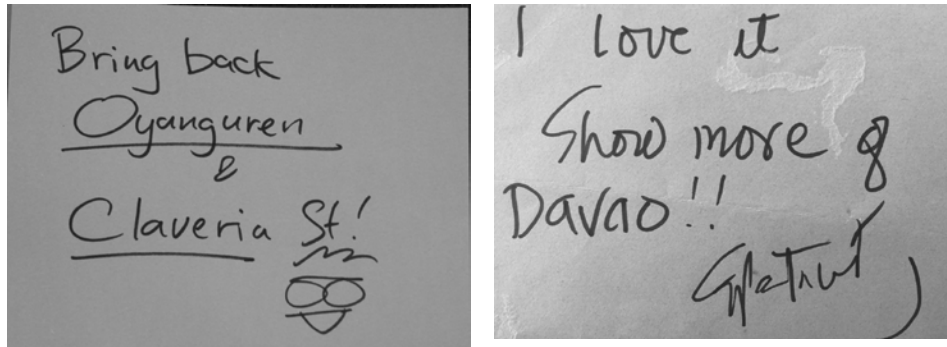 Bring back
Oyanguren
&
Claveria St!
I love it
Show more of
Davao!!